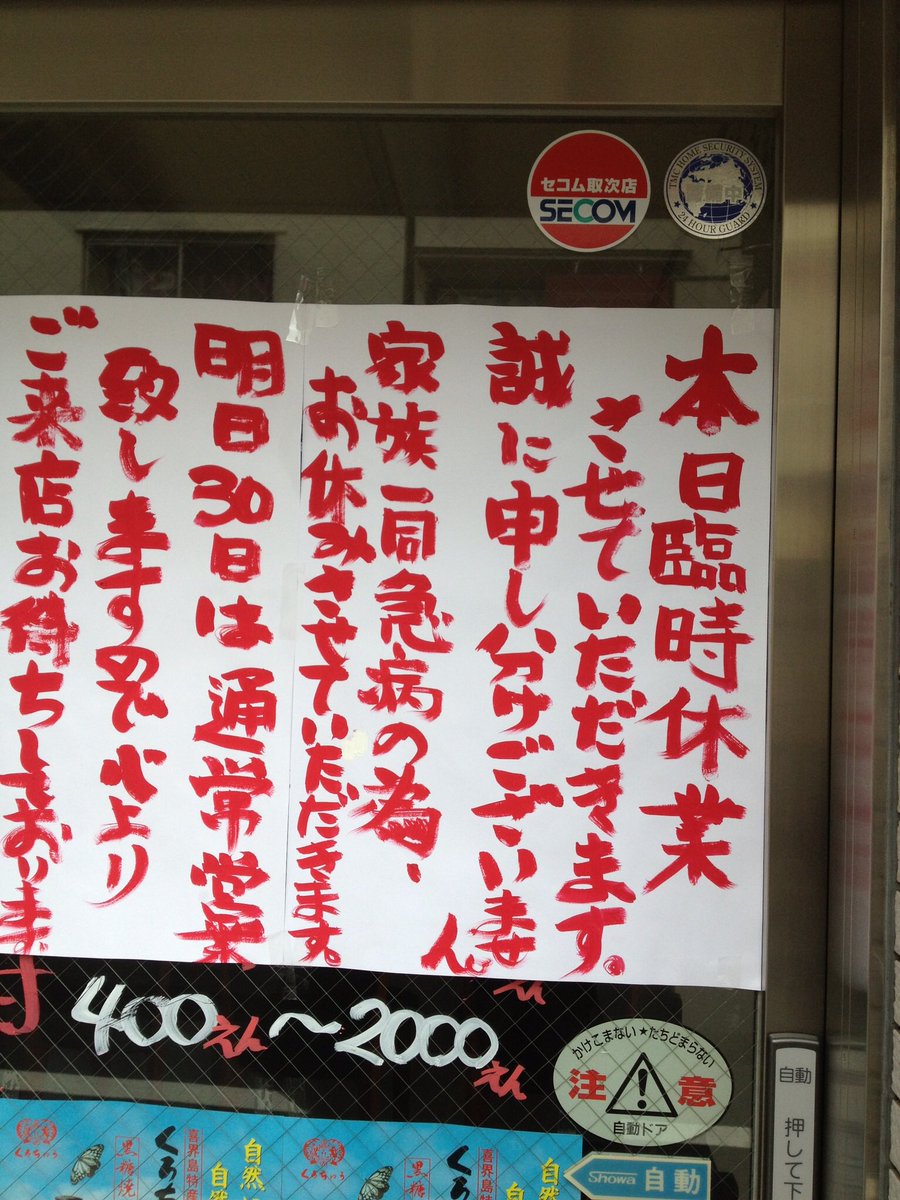 セコム取次店
SECOM
TMC HOME SECURITY SYSTEM
24 HOUR GUARD
本日臨時休業
させていただきます。
誠に申し分けございませ
ん。
家族一同急病の為、
お休みさせていただきます。
明日30日は通常営業
致しますので心より
ご来店お待ちしております
400えん〜2000えん
かけこまない★たちどまらない
注意
自動ドア
自動
押して下
Showa 自動
喜界島特産
黒糖焼
自然
くろちゅう
喜界島特産
黒糖
自然